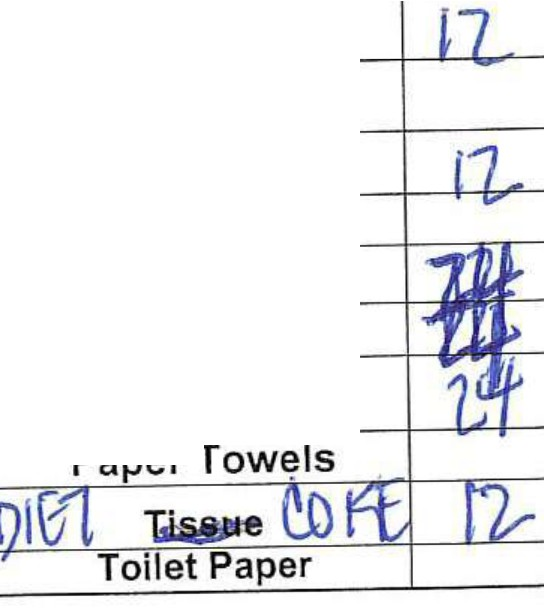 12
12
24
Paper Towels
DIET Tissue COKE 12
Toilet Paper